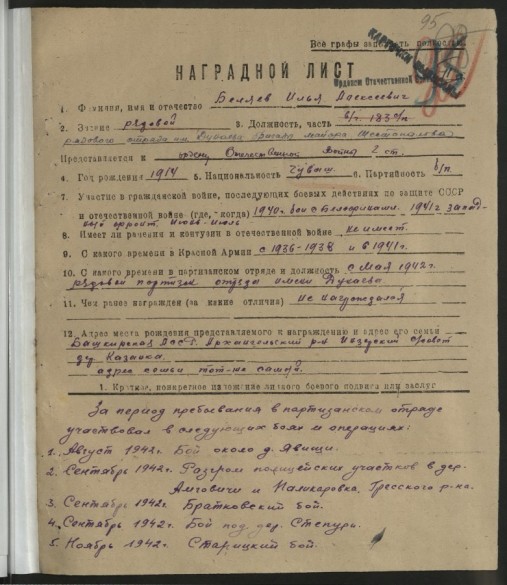 95
Все графы заполнять полностью.
НАГРАДНОЙ ЛИСТ
Орденом Отечественной
1. Фамилия, имя и отчество Беляев Илья Алексеевич
2. Звание рядовой 3. Должность, часть в/ч. 183 с/п.
рядового отряда им.
Представляется к ордену Отечественная Война 2 ст.
4. Год рождения 1914 5. Национальность Чуваш 6. Партийность б/п.
7. Участие в гражданской войне, последующих боевых действиях по защите СССР
и отечественной войне (где, когда) 1940 бои с белофинами. 1941 г. Запад-
ный фронт, июнь-июль
8. Имеет ли ранения и контузии в отечественной войне не имеет.
9. С какого времени в Красной Армии с 1936-1938 и в 1941 г.
10. С какого времени в партизанском отряде и должность с Мая 1942 г.
рядовой партизан отряда имени
11. Чем ранее награжден (за какие отличия) не награждался
12. Адрес места рождения представляемого к награждению и адрес его семьи
Башкирская АССР, Архангельский р-н
дер. Казанка.
адрес семьи тот-же самый.
1. Краткое, конкретное изложение личного боевого подвига или заслуг
За период пребывания в партизанском отряде
участвовал в следующих боях и операциях:
1. Август 1942 г. Бой около д. Явищи.
2. Сентябрь 1942 г. Разгром полицейские участков в дер.
и р-на.
3. Сентябрь 1942 г. Братковский бой.
4. Сентябрь 1942 г. Бой под дер.
5. Ноябрь 1942 г. Старицкий бой.